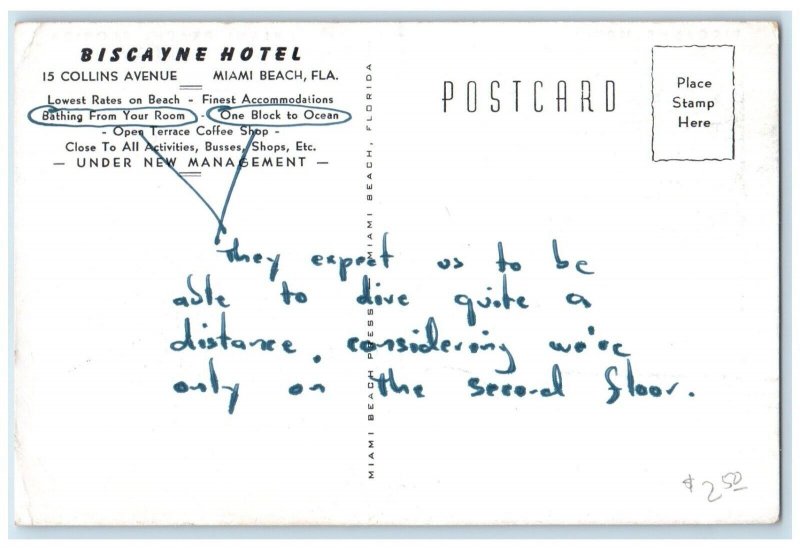 BISCAYNE HOTEL
15 COLLINS AVENUE MIAMI BEACH, FLA.
Lowest Rates on Beach - Finest Accommodations
Bathing From Your Room - One Block to Ocean
- Open Terrace Coffee Shop -
Close To All Activities, Busses, Shops, Etc.
— UNDER NEW MANAGEMENT —
POSTCARD
Place
Stamp
Here
They expect us to be
able to dive quite a
distance, considering we're
only on the second floor.
MIAMI BEACH PRESS, MIAMI BEACH, FLORIDA
$2.50